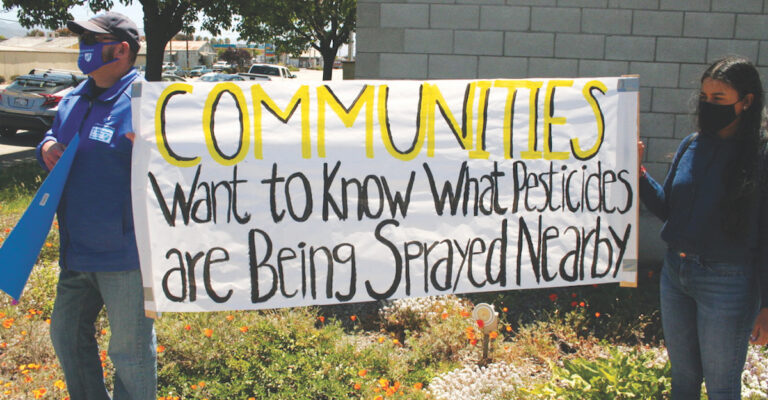 COMMUNITIES
Want to Know What Pesticides
are Being Sprayed Nearby